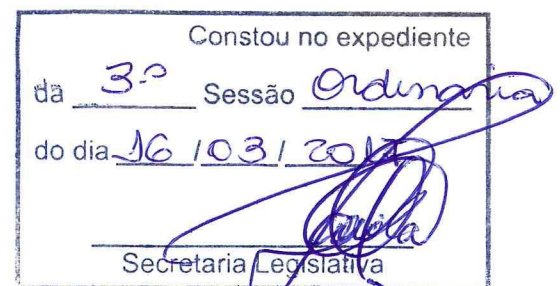 Constou no expediente
da 3.ª Sessão Ordinaria
do dia 16 / 03 /
Secretaria Legislativa